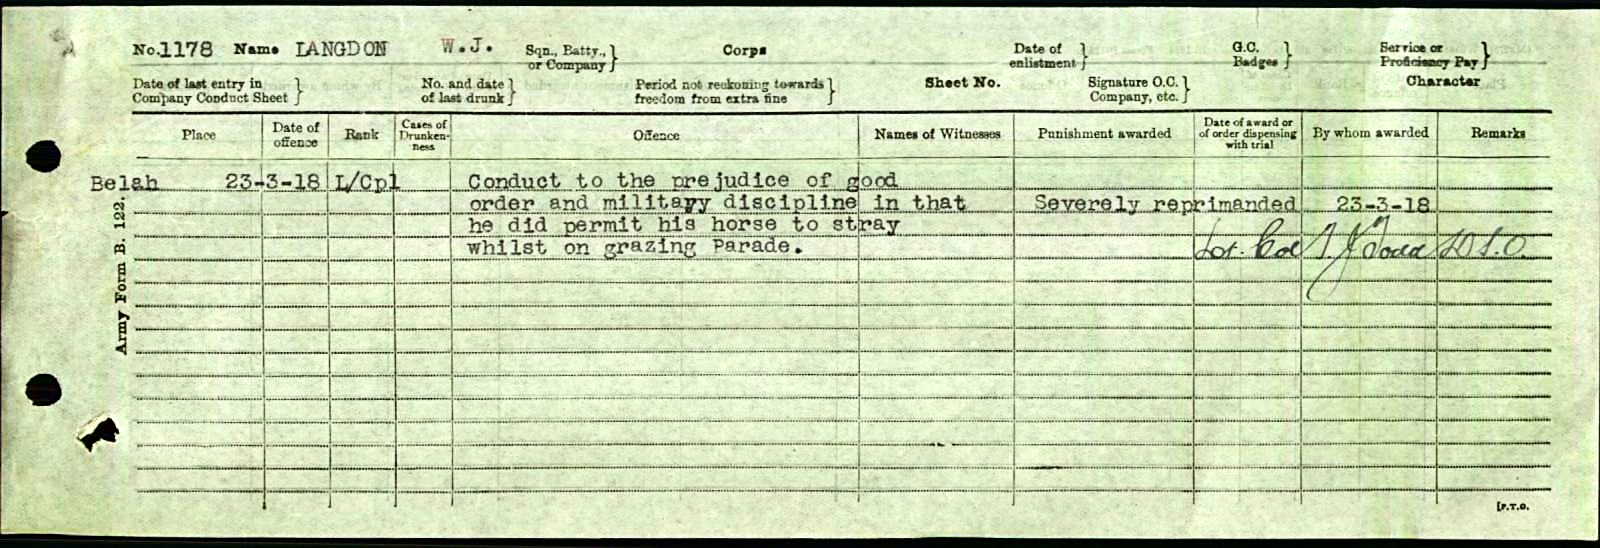 No. 1178 Name LANGDON W.J. Sqn., Batty., or Company } Corps Date of enlistment } G.C. Badges } Service or Proficiency Pay }
Date of last entry in Company Conduct Sheet } No. and date of last drunk } Period not reckoning towards freedom from extra fine } Sheet No. Signature O.C. Company, etc. } Character
Place Date of offence Rank Cases of Drunken-ness Offence Names of Witnesses Punishment awarded Date of award or of order dispensing with trial By whom awarded Remarks
Belah 23-3-18 L/Cpl Conduct to the prejudice of good
order and military discipline in that Severely reprimanded 23-3-18
he did permit his horse to stray
whilst on grazing Parade. Lt. Col T. J Todd D S.O.
Army Form B. 122.
[P.T.O.